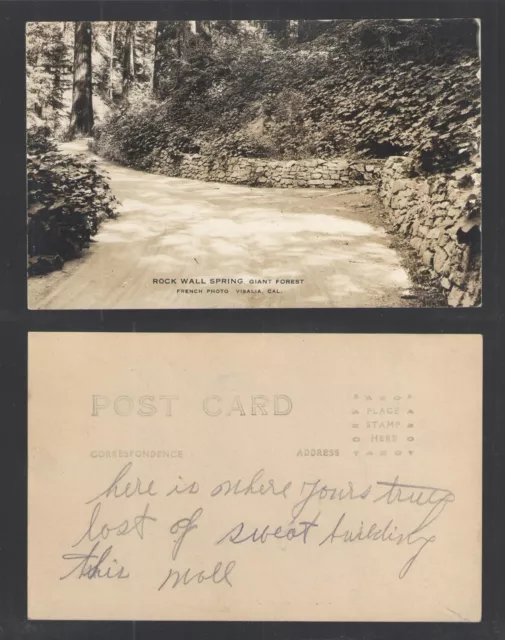 ROCK WALL SPRING GIANT FOREST
FRENCH PHOTO VISALIA, CAL.
POST CARD
PLACE
STAMP
HERE
CORRESPONDENCE
ADDRESS
here is where yours truly
lost of sweat building
this wall